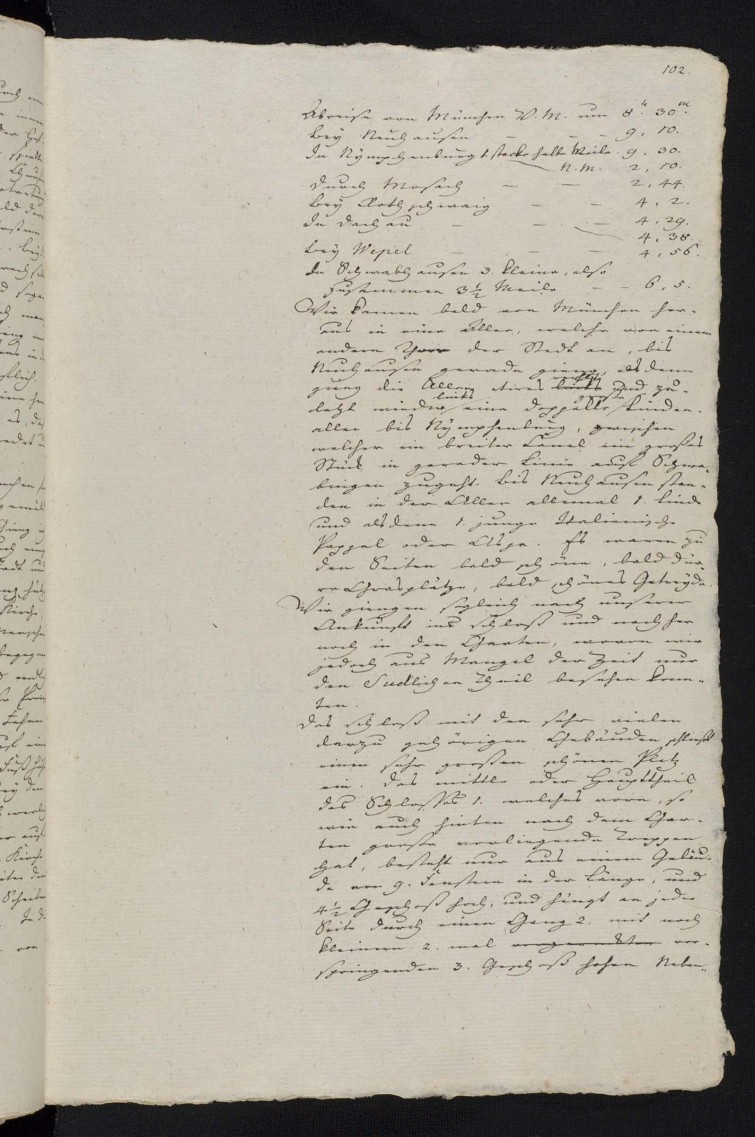 102.
Abreise von München V.M. um 8 u. 30 m.
bey Neuhausen — — 9, 10.
In Nymphenburg 1. starke halbe Meile. 9, 30.
N.M. 2, 10.
durch Mosach — — 2, 44.
bey Rothschwaig — — 4, 2.
In Dachau — — 4, 29.
4, 38.
bey Wepel — — 4, 56.
In Schwabhausen 3. kleine, also
zusammen 3 1/2 Meile — — 6, 5.
Wir kamen bald von München her-
aus in eine Allee, welche von einem
andern Thore der Stadt an, bis
Neuhausen gerade gieng, alsdenn
gieng die Allee etwas rechts und zu-
letzt wieder links eine doppelte Linden-
allee bis Nymphenburg, zwischen
welcher ein breiter Canal ein großes
Stück in gerader Linie auf Schwa-
bingen zugeht. Bis Neuhausen stan-
den in der Allee allemal 1. Linde
und alsdenn 1. junge Italienische
Pappel oder Aspe. Es waren zu
den Seiten bald schöne, bald dür-
re Grasplätze, bald schönes Getreyde.
Wir giengen sogleich nach unserer
Ankunft ins Schloß und nachher
noch in den Garten, wovon wir
jedoch aus Mangel der Zeit nur
den Südlichen Theil besehen konn-
ten.
Das Schloß mit den sehr vielen
darzu gehörigen Gebäuden schließt
einen sehr großen schönen Platz
ein. Das mittle oder Haupttheil
des Schlosses 1. welches vorn, so
wie auch hinten nach dem Gar-
ten große vorliegende Treppen
hat, besteht nur aus einem Gebäu-
de von 9. Fenstern in der Länge, und
4 1/2 Geschoß hoch, und hängt an jeder
Seite durch einen Gang 2. mit noch
kleinern 2. mal vor-
springenden 3. Geschoß hohen Neben-